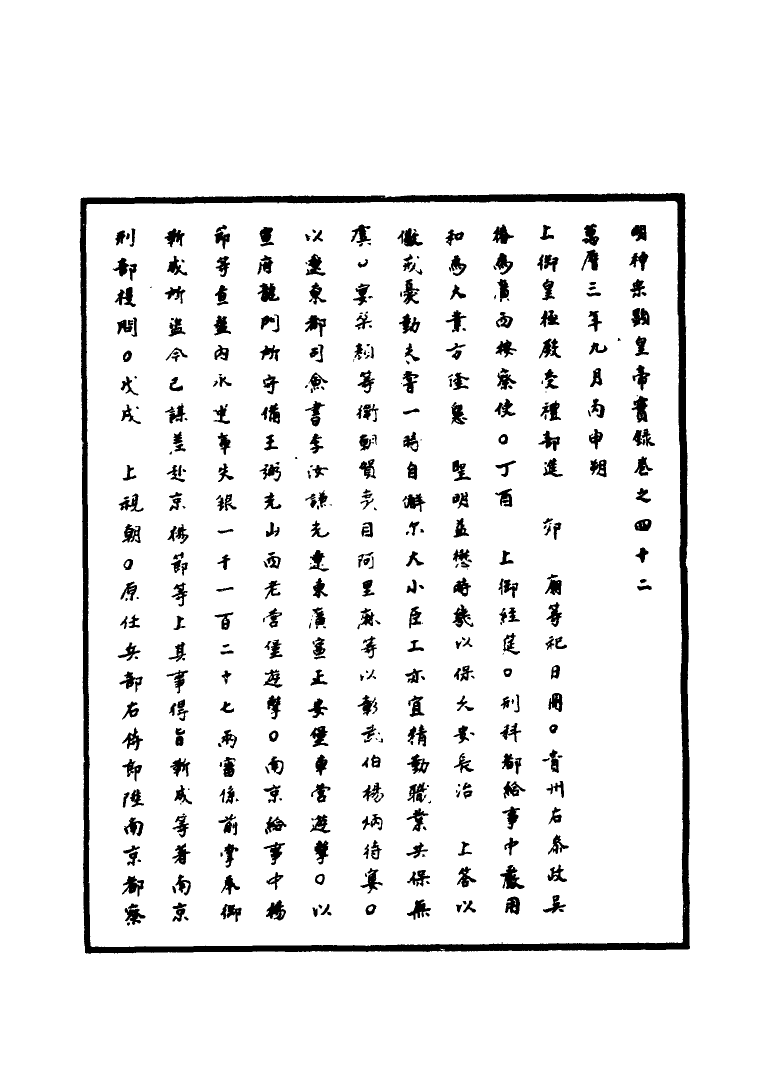 明神宗顯皇帝實錄卷之四十二
萬曆三年九月丙申朔
上御皇極殿受禮部進　郊　廟等祀日册○貴州右叅政吳
椿為廣西按察使○丁酉　上御經筵○刑科都給事中嚴用
和為大業方隆懇　聖明益懋時幾以保久安長治　上答以
儆戒憂勤夫豈一時自懈尔大小臣工亦宜精勤職業共保無
虞○宴朶顏等衛朝貢夷目阿里麻等以彰武伯楊炳待宴○
以遼東都司僉書李汝謙充遼東廣寧正安堡車營遊擊○以
宣府龍門所守備王弼充山西老營堡遊擊○南京給事中楊
節等查盤內永運庫失銀一千一百二十七兩審係前掌庫御
靳成所盜今已謀差赴京楊節等上其事得旨靳成等著南京
刑部提問○戊戌　上視朝○原任兵部右侍郎陞南京都察